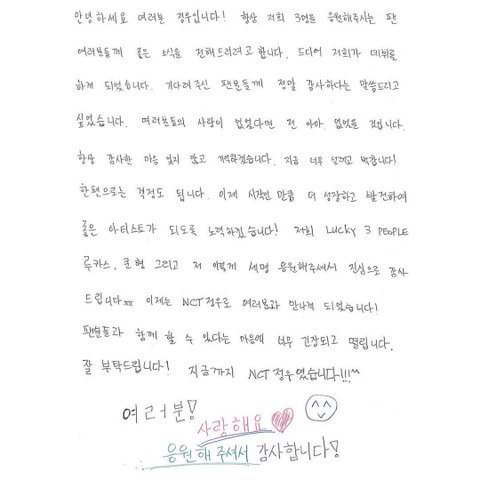 안녕하세요 여러분 정우입니다! 항상 저희 3명을 응원해주시는 팬
여러분들께 좋은 소식을 전해드리려고 합니다. 드디어 저희가 데뷔를
하게 되었습니다. 기다려주신 팬분들께 정말 감사하다는 말씀드리고
싶었습니다. 여러분들의 사랑이 없었다면 전 아마. 없었을 것입니다.
항상 감사한 마음 잊지 않고 기억하겠습니다. 지금 너무 설레고 벅찹니다!
한편으로는 걱정도 됩니다. 이제 시작인 만큼 더 성장하고 발전하여
좋은 아티스트가 되도록 노력하겠습니다! 저희 Lucky 3 PEOPLE
루카스, 쿤형 그리고 저 이렇게 세명 응원해주셔서 진심으로 감사
드립니다ㅠㅠ 이제는 NCT 정우로 여러분과 만나게 되었습니다!
팬분들과 함께 할 수 있다는 마음에 너무 긴장되고 떨립니다.
잘 부탁드립니다! 지금까지 NCT 정우였습니다!!!^^
여러분!
사랑해요
응원해주셔서 감사합니다!